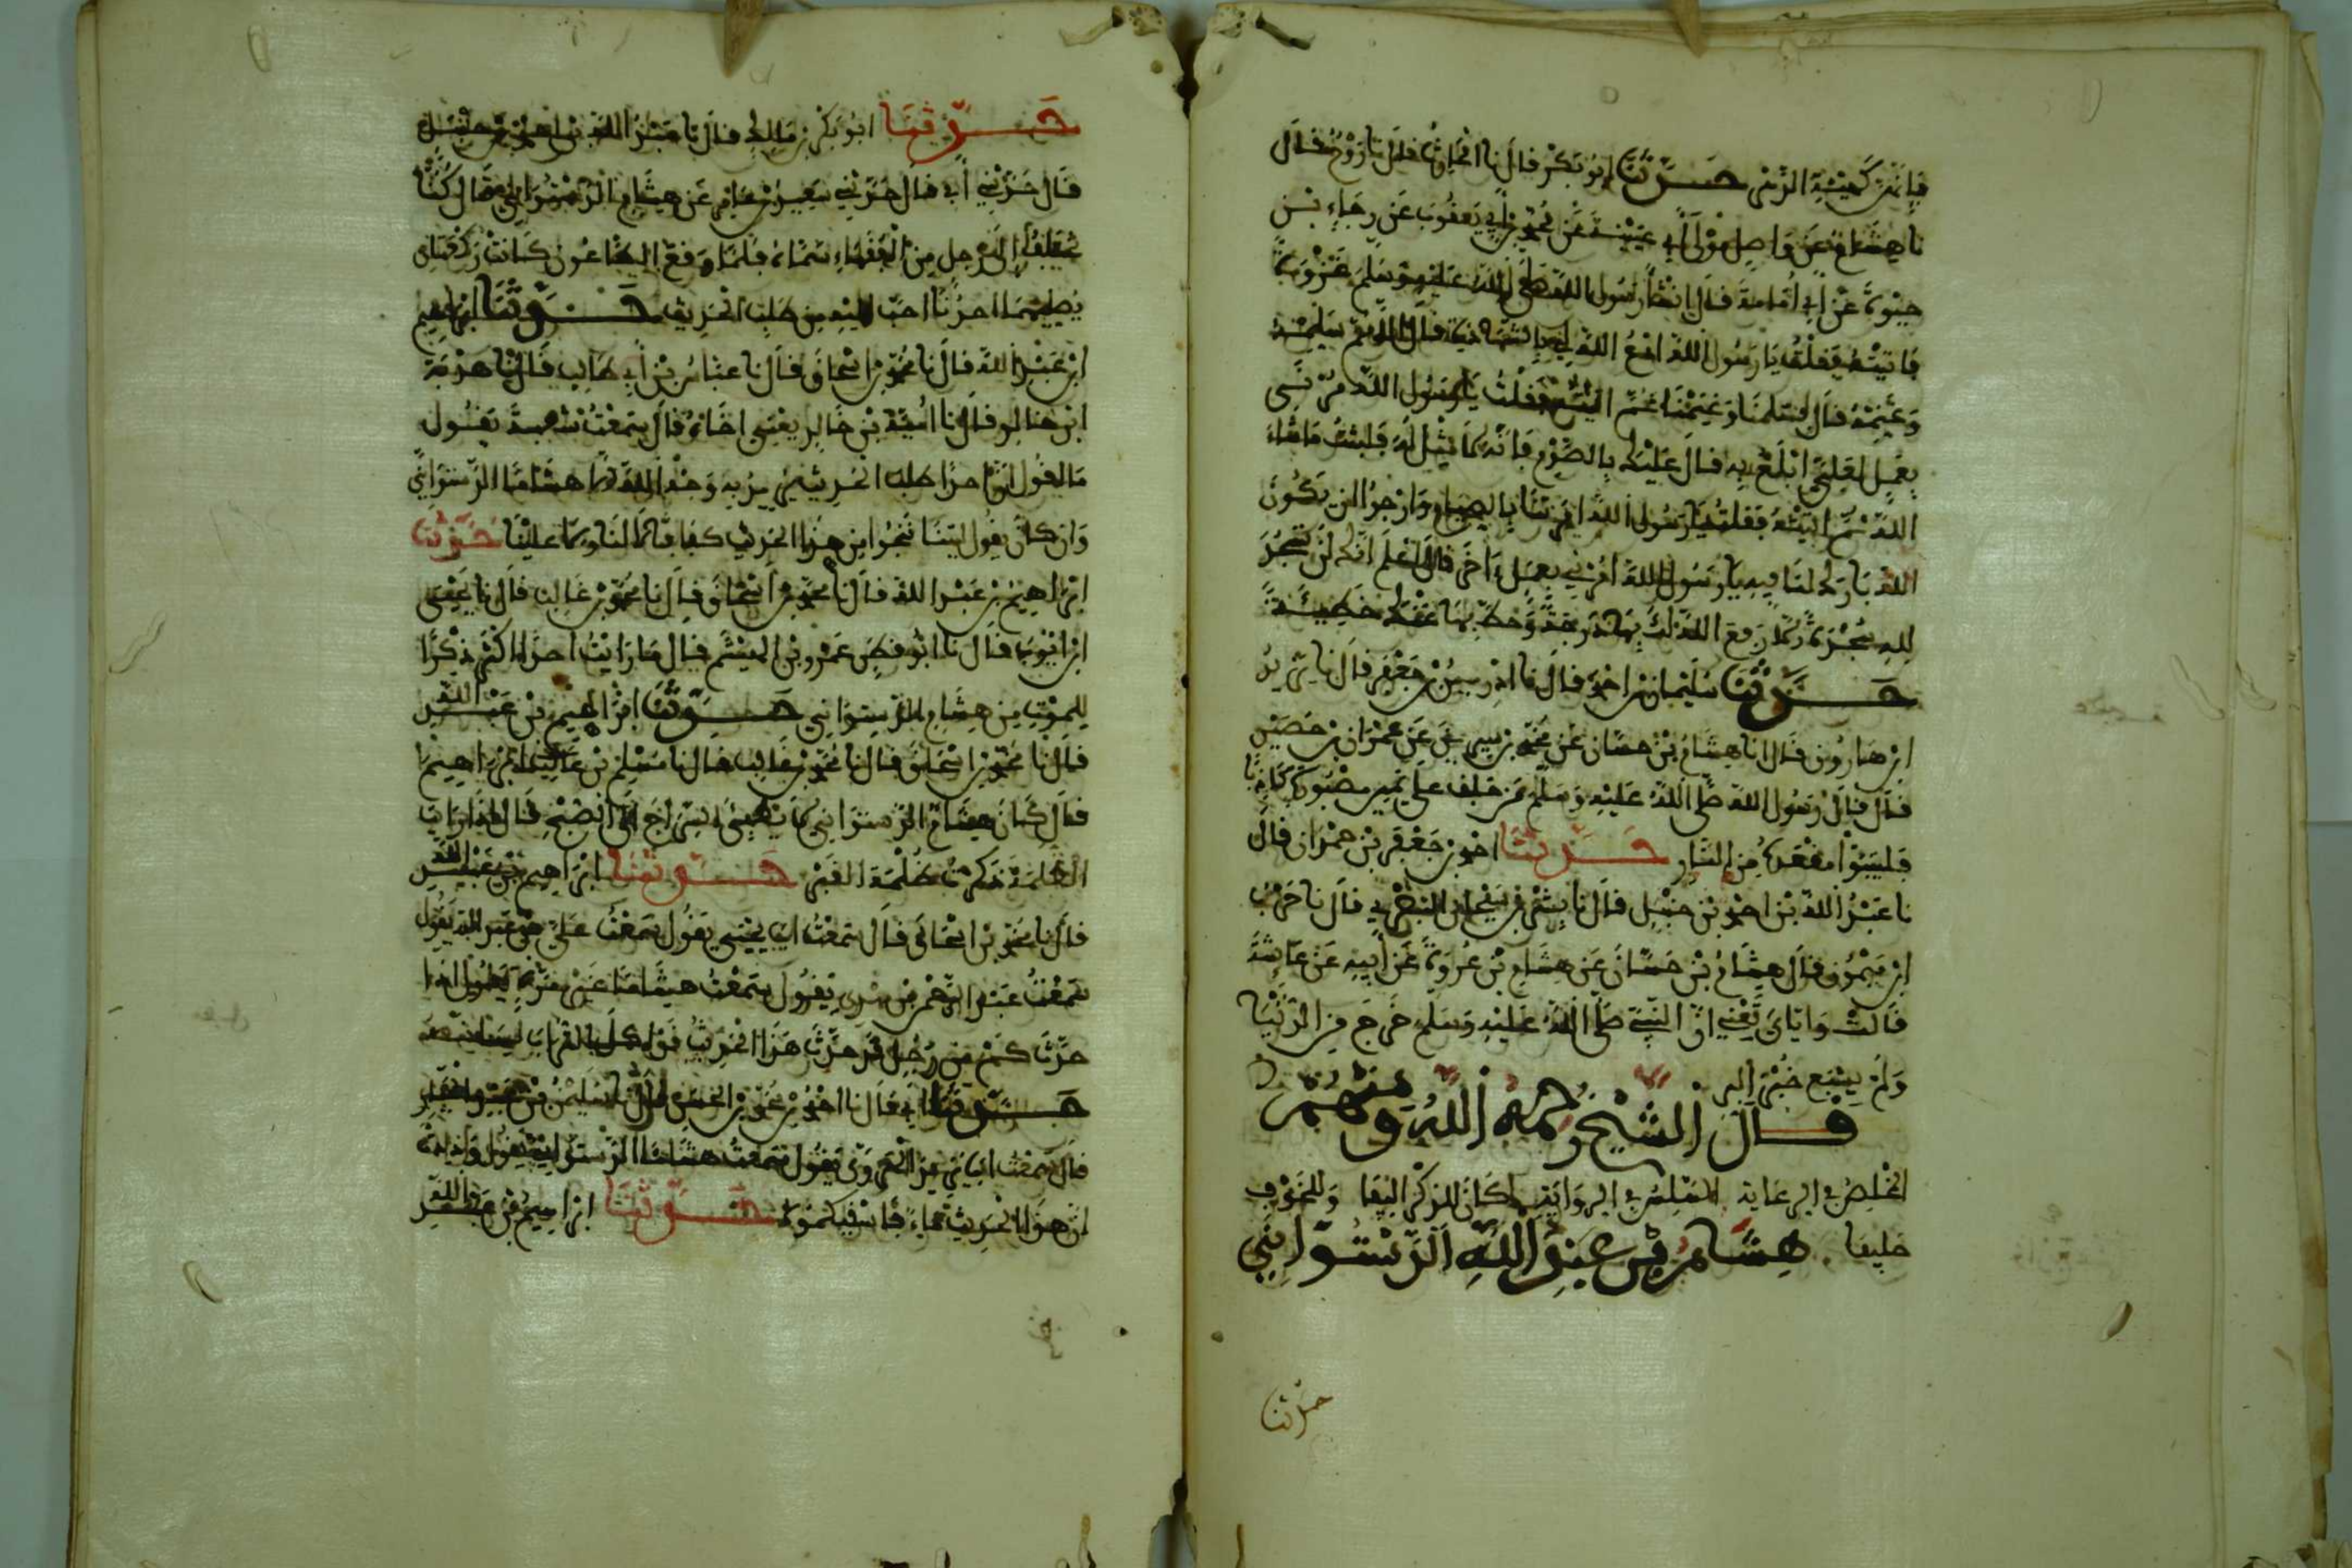 فإنه كهيئة الدمى حدثنا أبو بكر قال نا الحارث قال نا روح قال
نا هشام عن واصل مولى أبي عيينة عن محمد بن أبي يعقوب عن رجاء بن
حيوة عن أبي أمامة قال أنشأ رسول الله صلى الله عليه وسلم غزوة
فأتيته فقلت يا رسول الله ادع الله لي بالشهادة فقال اللهم سلمهم
وغنمهم قال فسلمنا وغنمنا ثم أتيته فقلت يا رسول الله مرني
بعمل لعلي أبلغ به قال عليك بالصوم فإنه لا مثل له فلبثت ما شاء
الله ثم أتيته فقلت يا رسول الله أمرتنا بالصيام وأرجو أن يكون
الله بارك لنا فيه يا رسول الله أمرني بعمل آخر قال اعلم أنك لن تسجد
لله سجدة إلا رفع الله لك بها درجة وحط بها عنك خطيئة
حدثنا سليمان بن أحمد قال نا إدريس بن جعفر قال نا يزيد
ابن هارون قال أنا هشام بن حسان عن محمد بن سيرين عن عمران بن حصين
قال قال رسول الله صلى الله عليه وسلم من حلف على يمين مصبورة كاذبا
فليتبوأ مقعده من النار حدثنا أحمد بن جعفر بن حمدان قال
نا عبد الله بن أحمد بن حنبل قال نا قال نا حرب
ابن ميمون قال هشام بن حسان عن هشام بن عروة عن أبيه عن عائشة
قالت وإياي تعني أن النبي صلى الله عليه وسلم خرج من الدنيا
ولم يشبع خبز البر
قال الشيخ رحمه الله ومنهم
المخلص في الرعاية المسلم في الرواية كان للذكر أليفا وللخوف
حليفا هشام بن عبد الله الدستوائي
حدثنا
حدثنا أبو بكر بن مالك قال نا عبد الله بن أحمد بن حنبل
قال حدثني أبي قال حدثني سعيد بن عامر عن هشام الدستوائي قال كنا
نختلف إلى رجل من الفقهاء سماه فلما وقع الطاعون كانت ركعتان
يصليهما أحدنا أحب إليه من طلب الحديث حدثنا إبراهيم
ابن عبد الله قال نا محمد بن إسحاق قال نا عباس بن أبي طالب قال نا هدبة
ابن خالد قال نا أمية بن خالد يعني أخاه قال سمعت شعبة يقول
ما أقول إن أحدا طلب الحديث يريد به وجه الله إلا هشاما الدستوائي
وإن كان يقول ليتنا ننجوا من هذا الحديث كفافا لا لنا ولا علينا حدثنا
إبراهيم بن عبد الله قال نا محمد بن إسحاق قال نا محمد بن غالب قال نا يحيى
ابن أيوب قال نا أبو قطن عمرو بن الهيثم قال ما رأيت أحدا أكثر ذكرا
للموت من هشام الدستوائي حدثنا إبراهيم بن عبد الله
قال نا محمد بن إسحاق قال نا محمد بن غالب قال نا مسلم بن إبراهيم
قال كان هشام الدستوائي لا يطفئ السراج إلى الصبح قال إذا رأيت
الظلمة ذكرت ظلمة القبر حدثنا إبراهيم بن عبد الله
قال نا محمد بن إسحاق قال سمعت أبا يحيى يقول سمعت علي بن عبد الله يقول
سمعت عبد الرحمن بن مهدي يقول سمعت هشاما غير مرة يقول إذا
حدث كم من رجل قد حدث هذا الحديث
حدثنا أبي قال نا أحمد بن محمد بن الحسن قال نا
قال سمعت أبا يقول سمعت هشاما الدستوائي يقول
إن هذا الحديث حدثنا إبراهيم بن عبد الله